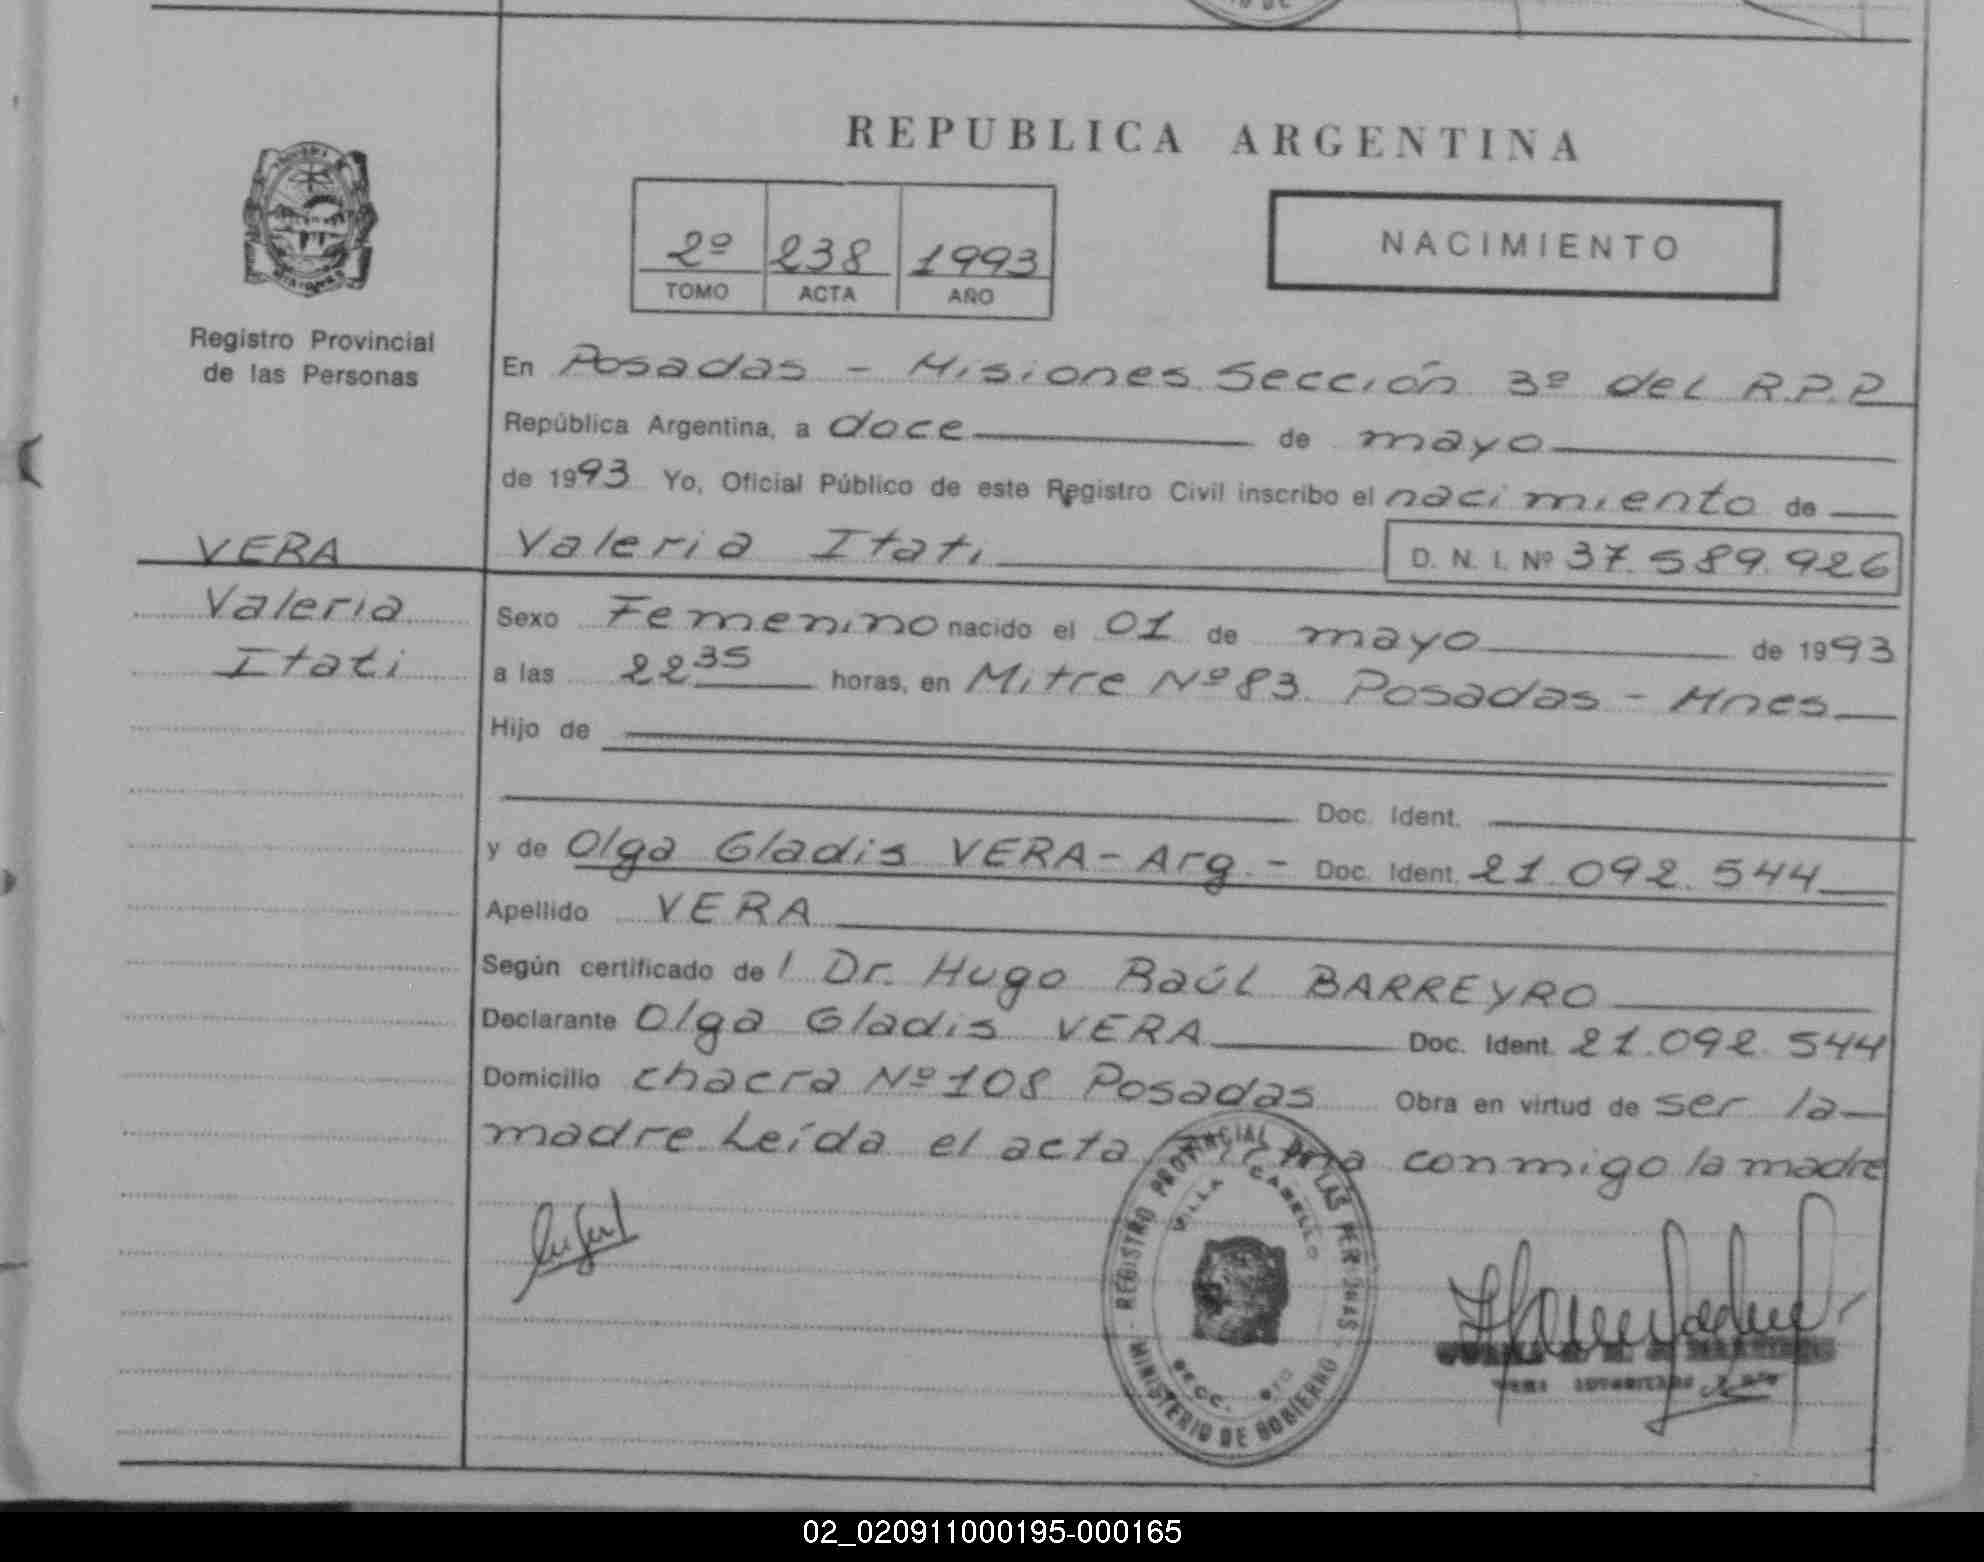 REPUBLICA ARGENTINA
2º 238 1993
TOMO ACTA AÑO
NACIMIENTO
Registro Provincial
de las Personas
VERA
Valeria
Itati
En Posadas - Misiones Sección 3º del R.P.P
República Argentina, a doce de mayo
de 1993 Yo, Oficial Público de este Registro Civil inscribo el nacimiento de
Valeria Itati D. N. I. Nº 37.589.926
Sexo Femenino nacido el 01 de mayo de 1993
a las 22 35 horas, en Mitre Nº 83. Posadas - Mnes
Hijo de
Doc. Ident.
y de Olga Gladis VERA - Arg. - Doc. Ident. 21.092.544
Apellido VERA
Según certificado de l Dr. Hugo Raúl BARREYRO
Declarante Olga Gladis VERA Doc. Ident. 21.092.544
Domicilio chacra Nº 108 Posadas Obra en virtud de ser la
madre. Leída el acta firma conmigo la madre
REGISTRO PROVINCIAL DE LAS PERSONAS
VILLA CABELLO
SECC. 3ra
MINISTERIO DE GOBIERNO
02_020911000195-000165